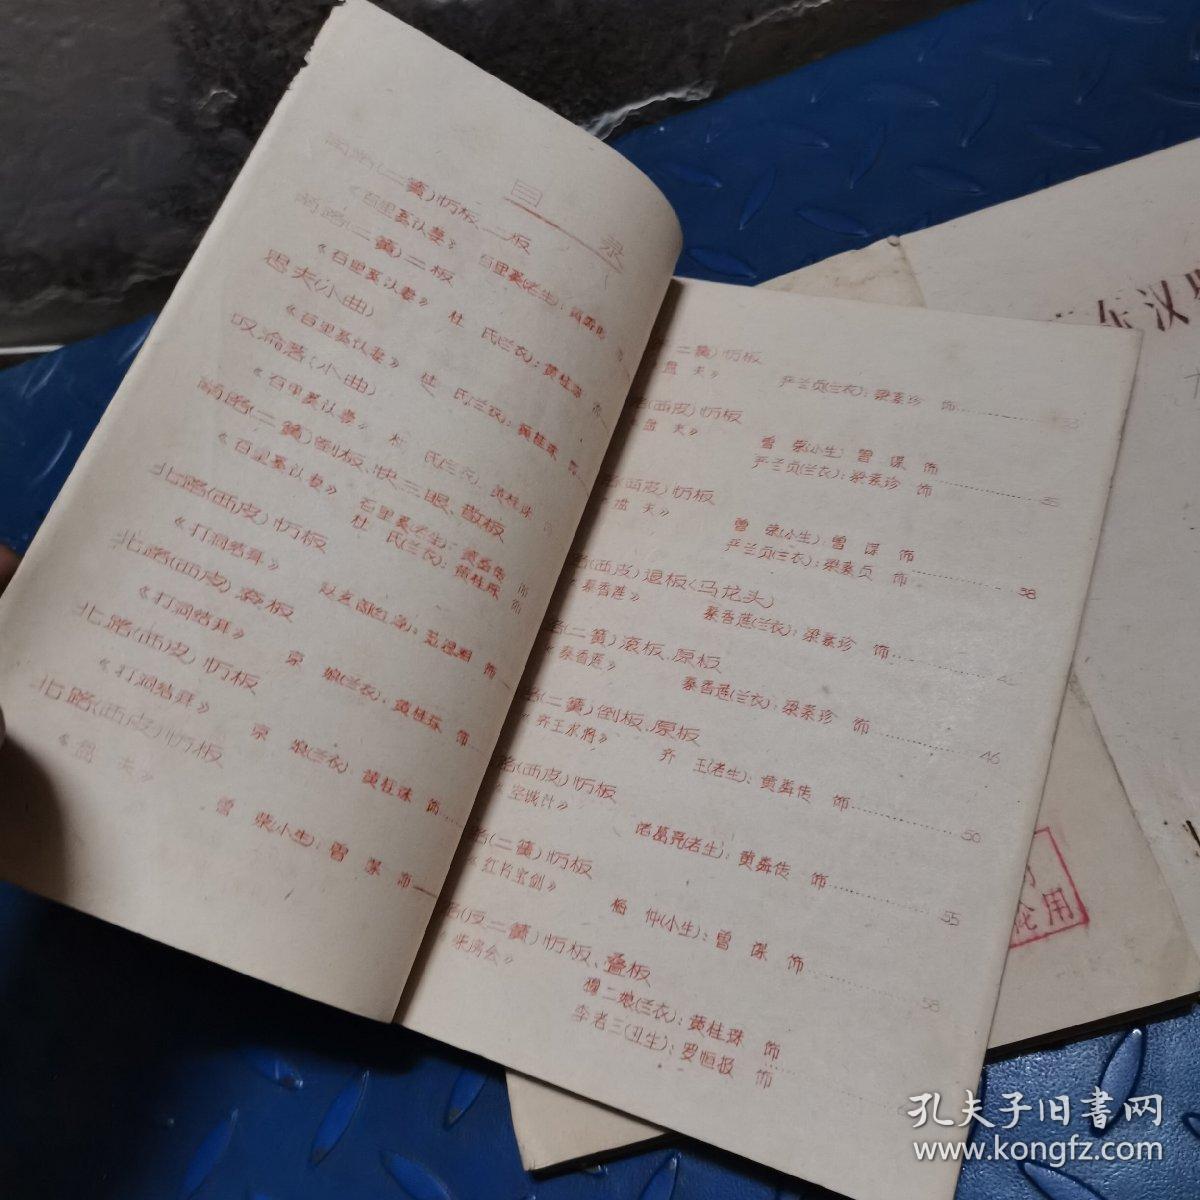 目录
南路(二簧)忨板、二板
《百里奚认妻》 百里奚(老生):黄粦传 饰
南路(二簧)二板
《百里奚认妻》 杜 氏(兰衣):黄桂珠 饰
思夫(小曲)
《百里奚认妻》 杜 氏(兰衣):黄桂珠 饰
叹沦落(小曲)
《百里奚认妻》 杜 氏(兰衣):黄桂珠 饰
南路(二簧)倒板、快三眼、散板
《百里奚认妻》 百里奚(老生):黄粦传 饰
杜 氏(兰衣):黄桂珠 饰
北路(西皮)忨板
《打洞结拜》
北路(西皮)滚板
《打洞结拜》 京 娘(兰衣):黄桂珠 饰
北路(西皮)忨板
《打洞结拜》 京 娘(兰衣):黄桂珠 饰
北路(西皮)忨板
《盘 夫》
曾 荣(小生):曾 谋 饰
二簧)忨板
盘 夫》 严兰贞(兰衣):梁素珍 饰 33
路(西皮)忨板
盘 夫》 曾 荣(小生)曾 谋 饰
严兰贞(兰衣):梁素珍 饰 35
路(西皮)忨板
盘 夫》 曾 荣(小生)曾 谋 饰
严兰贞(兰衣):梁素贞 饰 38
路(西皮)退板(马龙头)
秦香莲》 秦香莲(兰衣):梁素珍 饰
路(二簧)滚板、原板
《秦香莲》 秦香莲(兰衣):梁素珍 饰 46
路(二簧)倒板、原板
《齐王求将》 齐 王(老生):黄粦传 饰 50
路(西皮)忨板
《空城计》 诸葛亮(老生):黄粦传 饰 55
路(二簧)忨板
《红书宝剑》 柏 仲(小生):曾 谋 饰 58
路(反二簧)忨板、叠板
柴房会》 穆二娘(兰衣):黄桂珠 饰
李老三(丑生):罗恒报 饰
东汉
用
孔夫子旧書网
www.kongfz.com